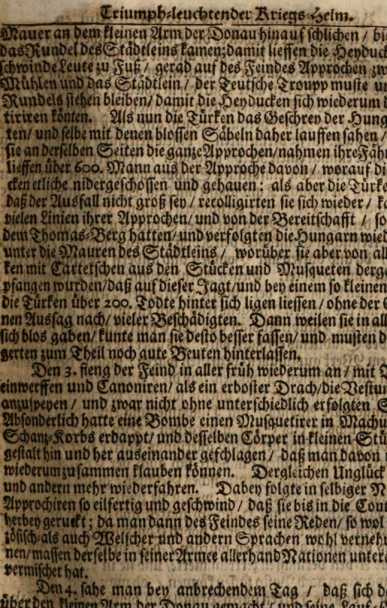 Triumph-leuchtender Kriegs-Helm.
Mauer an dem kleinen Arm der Donau hinauf schlichen / biß
das Rundel des Städtleins kamen; damit liessen die Heyduck
schwinde Leute zu Fuß / gerad auf des Feindes Approchen zu
Mühlen und das Städtlein / der Teutsche Troupp muste
Rundels stehen bleiben / damit die Heyducken sich wiederum
tiriren könten. Als nun die Türken das Geschrey der Hung
ten / und selbe mit denen blossen Säbeln daher lauffen sahen /
sie an derselben Seiten die ganze Approchen / nahmen ihre Fäh
lieffen über 600. Mann aus der Approche davon / worauf di
cken etliche nidergeschossen und gehauen: als aber die Türk
daß der Ausfall nicht groß sey / recolligirten sie sich wieder /
vielen Linien ihrer Approchen / und von der Bereitschafft / so
dem Thomas-Berg hatten / und verfolgten die Hungarn wied
unter die Mauren des Städtleins / worüber sie aber von all
ken mit Cartetschen aus den Stücken und Musqueten derg
pfangen wurden / daß auf dieser Jagt / und bey einem so kleinen
die Türken über 200. Todte hinter sich ligen liessen / ohne der
nen Aussag nach / vieler Beschädigten. Dann weilen sie in all
sich blos gaben / kunte man sie desto besser fassen / und musten d
gerten zum Theil noch gute Beuten hinterlassen.
Den 3. fieng der Feind in aller früh wiederum an / mit
einwerffen und Canoniren / als ein erboster Drach / die Vestun
anzuspeyen / und zwar nicht ohne unterschiedlich erfolgten
Absonderlich hatte eine Bombe einen Musquetirer in Mach
Schanz-Korbs erdappt / und desselben Cörper in kleinen Stü
gestalt hin und her auseinander geschlagen / daß man davon
wiederum zusammen klauben können. Dergleichen Unglück
und andern mehr wiederfahren. Dabey folgte in selbiger N
Approchiren so eilfertig und geschwind / daß sie bis in die Con
herbey geruckt; da man dann des Feindes seine Reden / so wol
zösisch- als auch Welscher und andern Sprachen wohl verneh
nen / massen derselbe in seiner Armee allerhand Nationen unter
vermischet hat.
Den 4. sahe man bey anbrechendem Tag / daß sich d
über den kleinen Arm der Donau gemacht /